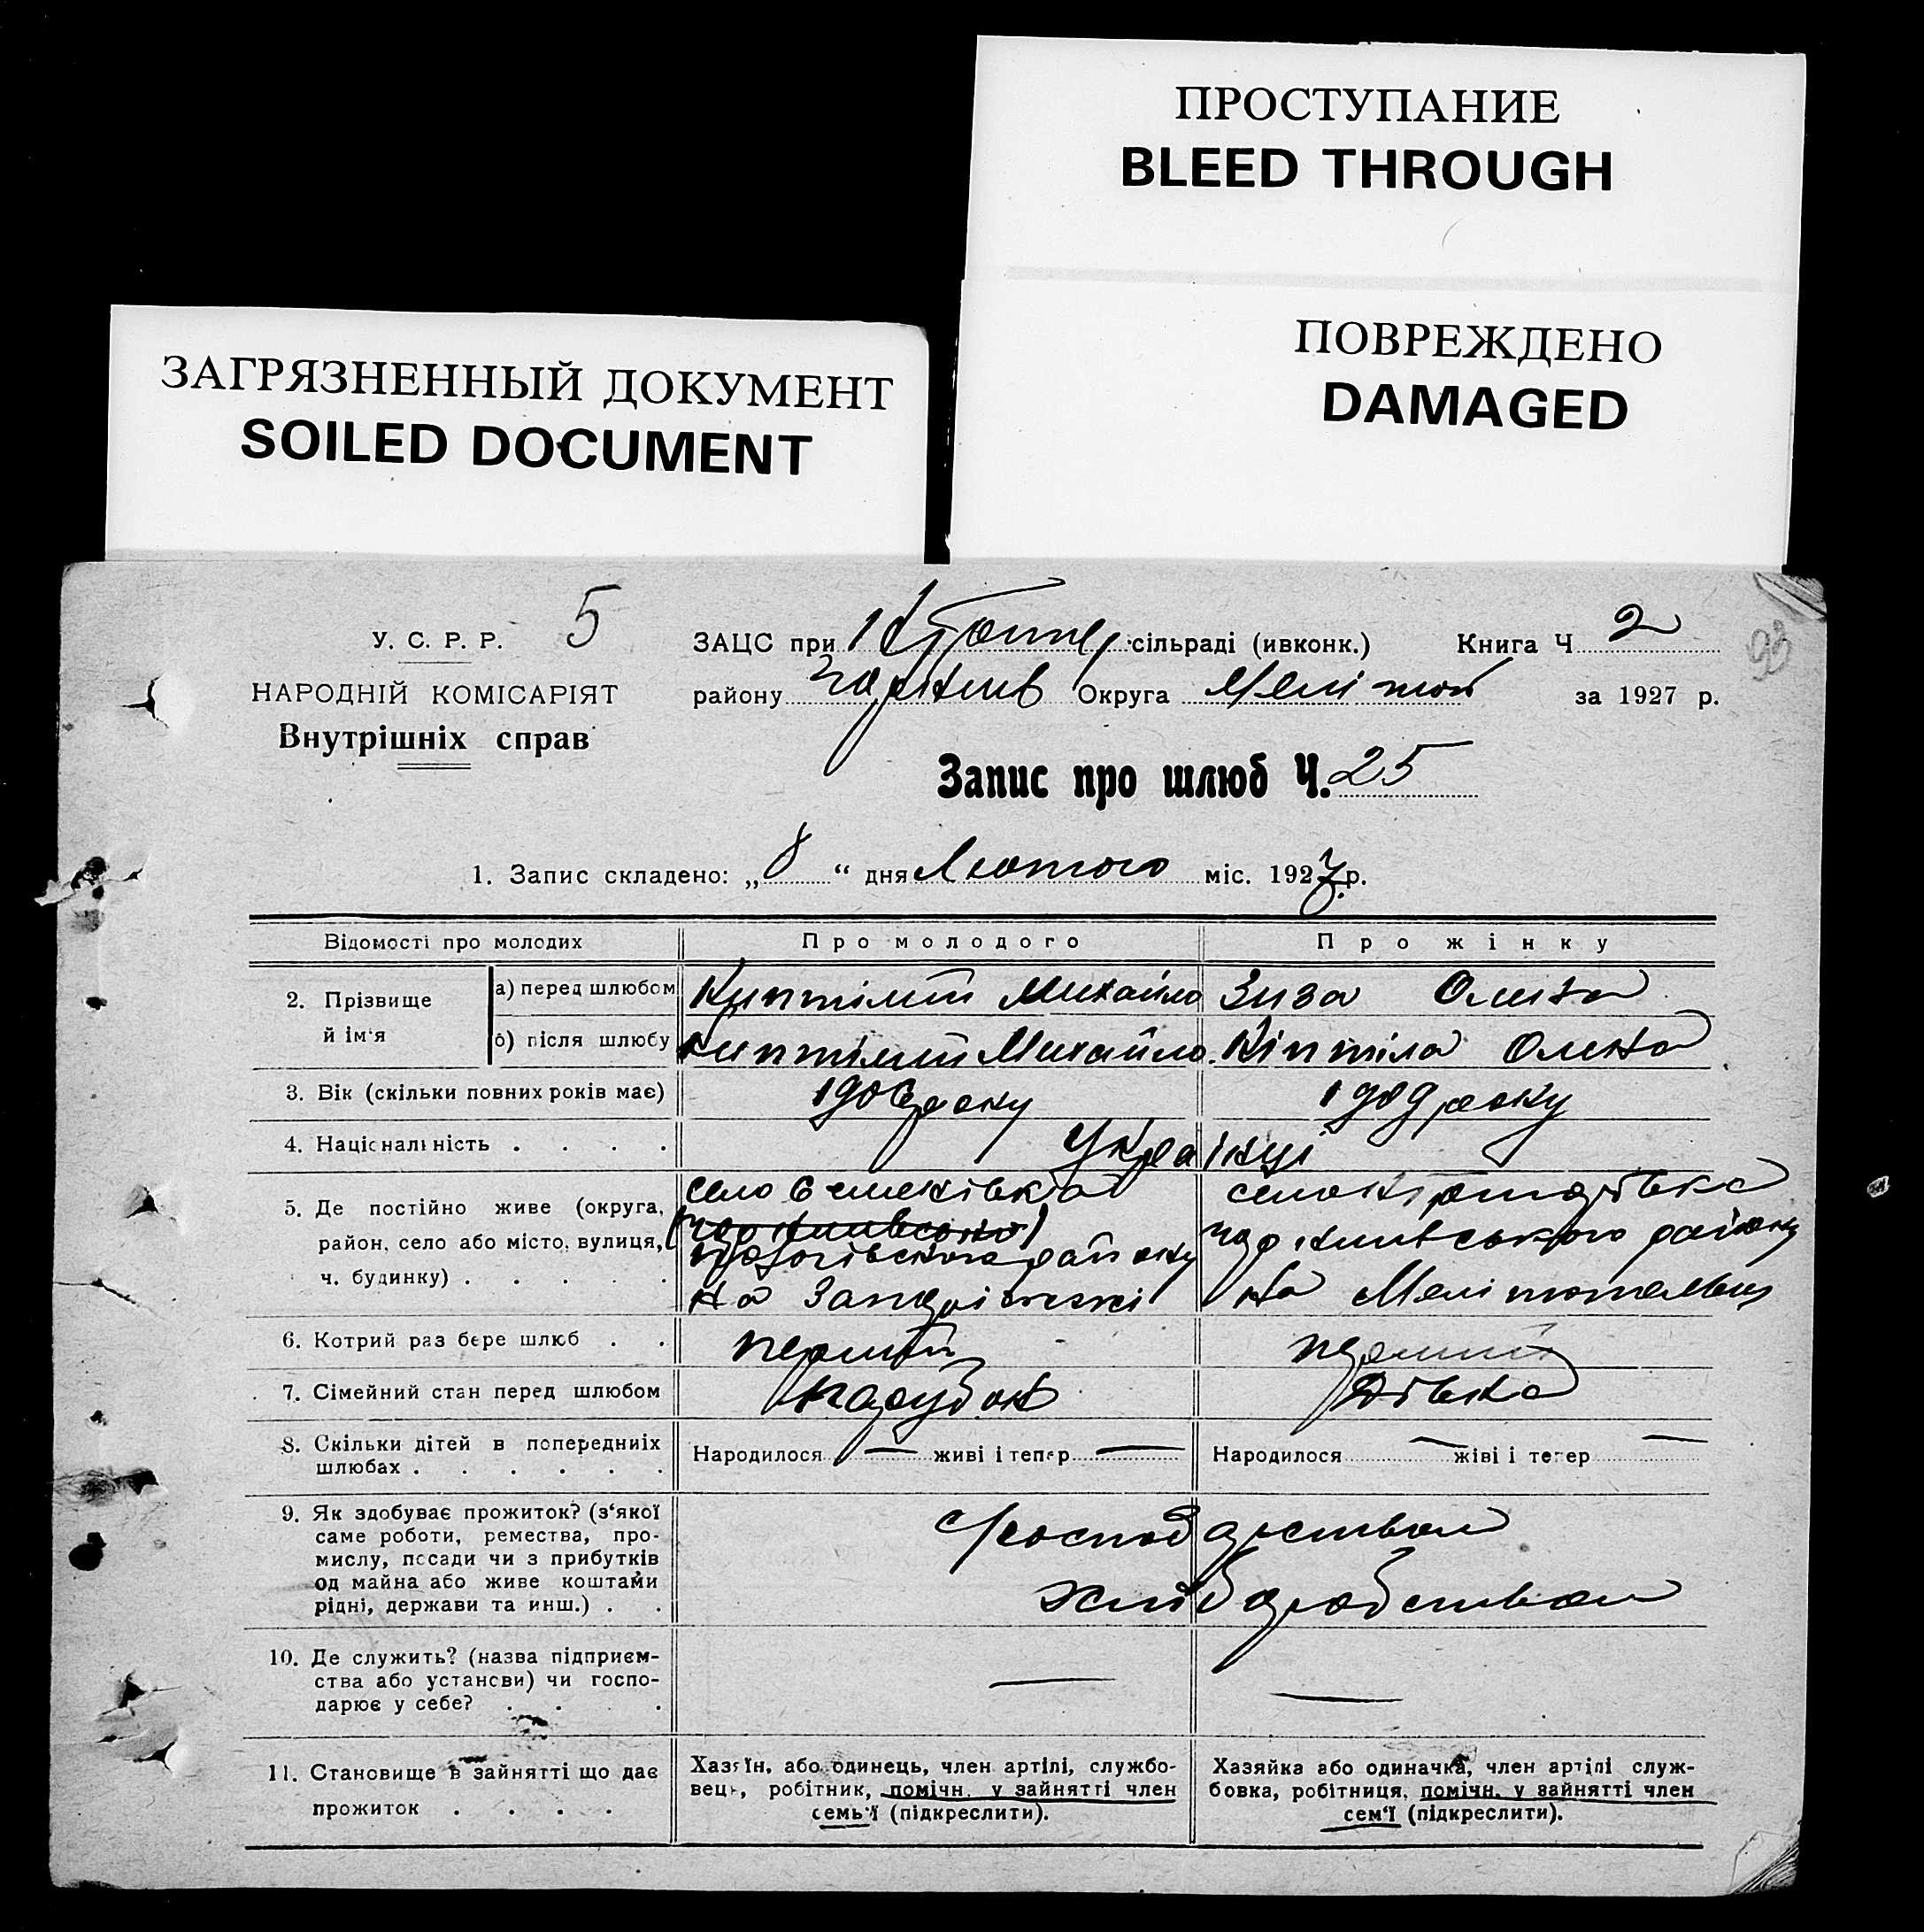 ПРОСТУПАНИЕ
BLEED THROUGH
ПОВРЕЖДЕНО
DAMAGED
ЗАГРЯЗНЕННЫЙ ДОКУМЕНТ
SOILED DOCUMENT
У. С. Р. Р. 5
НАРОДНІЙ КОМІСАРІЯТ
Внутрішніх справ
ЗАЦС при сільраді (ивконк.) Книга Ч 2
93
району Округа Меліто́п за 1927 р.
Запис про шлюб Ч. 25
1. Запис складено: „8“ дня Лютого міс. 1927 р.
Відомості про молодих Про молодого Про жінку
2. Прізвище й ім'я
а) перед шлюбом Киптілий Михайло Зиза Олена
б) після шлюбу Киптілий Михайло. Кіптіла Олена
3. Вік (скільки повних років має) 1906 року 1909 року
4. Національність . . . . Українці
5. Де постійно живе (округа, район, село або місто, вулиця, ч. будинку) . . . . .
село району
на Запоріжжі
село
району
на Мелітопольщ
6. Котрий раз бере шлюб . . перший перший
7. Сімейний стан перед шлюбом парубок Дівка
8. Скільки дітей в попередниіх шлюбах . . . . . .
Народилося — живі і тепер —
Народилося — жіві і тепер —
9. Як здобуває прожиток? (з‘якої
саме роботи, ремества, про-
мислу, посади чи з прибутків
од майна або живе коштами
рідні, держави та инш.) . .
хліборобством
10. Де служить? (назва підприєм-
ства або установи) чи госпо-
дарює у себе? . . .
— —
11. Становище в зайнятті що дає
прожиток . . . .
Хазяїн, або одинець, член артілі, службо-
вець, робітник, помічн. у зайнятті член
семь‘ї (підкреслити).
Хазяйка або одиначка, член артілі служ-
бовка, робітниця, помічн. у зайнятті член
сем‘ї (підкреслити).